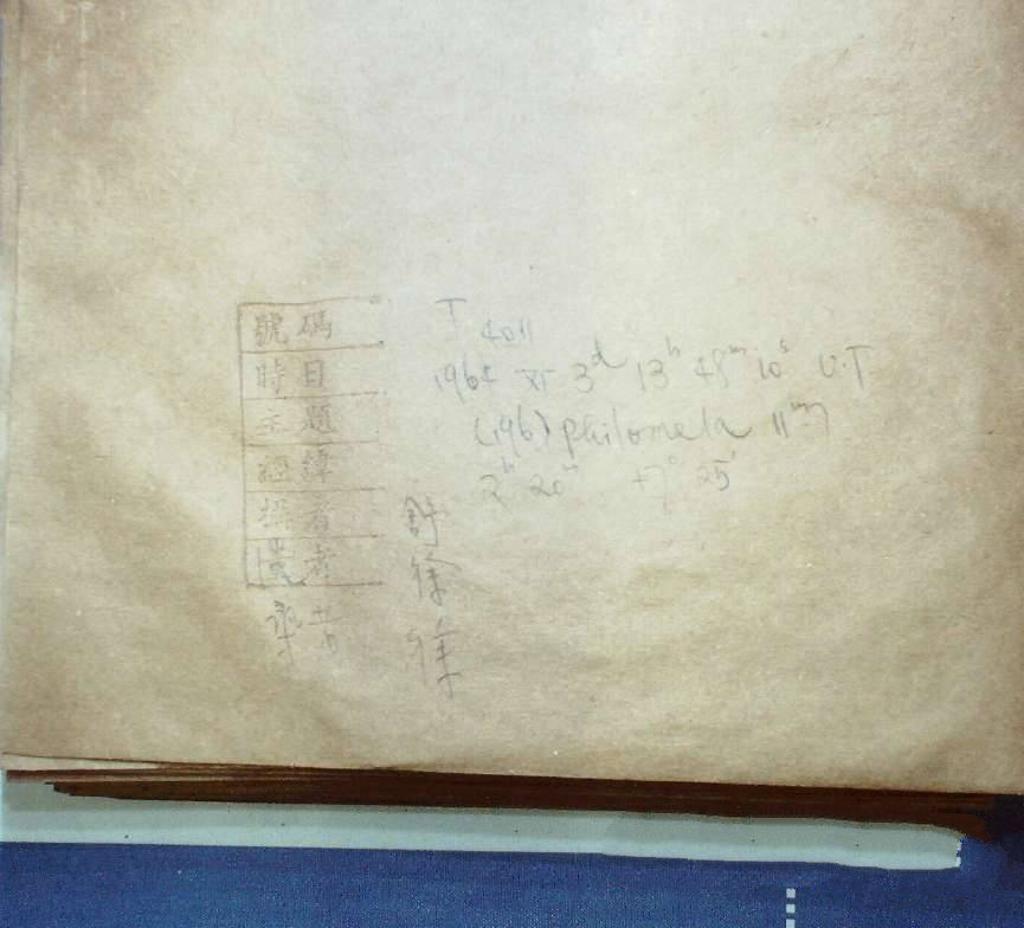 號碼 J 4011
時日 1964 XI 3d 13h 48m 10s U.T
主題 (196) philomela 11m
經緯 2h 20m +7° 25'
攝者 許
徐
徐